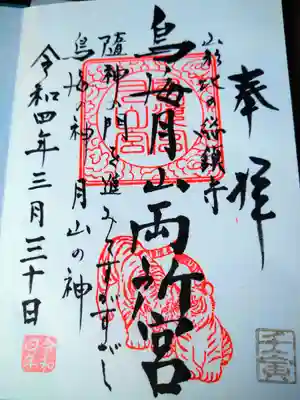 奉拝
山形の総鎮守
鳥海月山両所宮
随神の門を進みてすがすがし
鳥海の神月山の神
令和四年三月三十日
壬寅